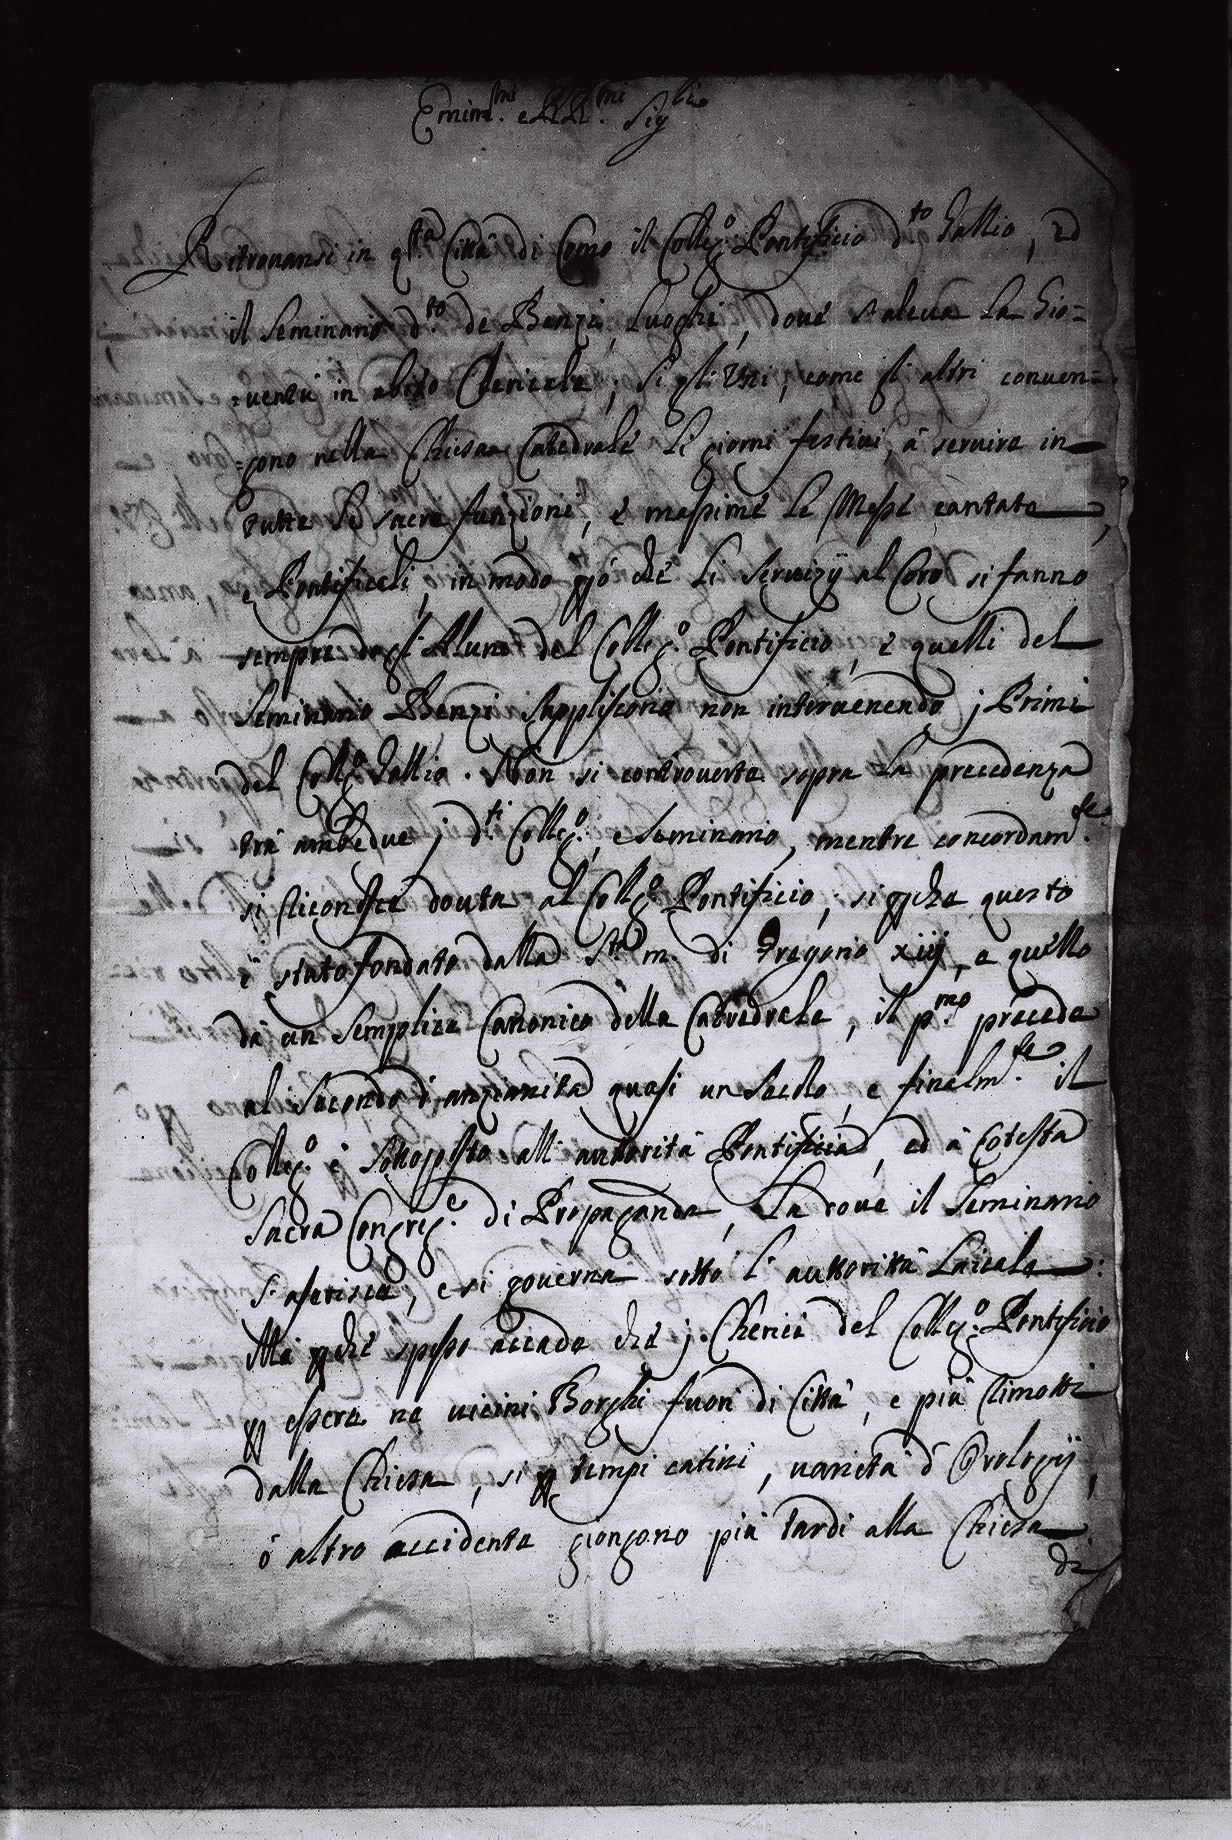 Emin.mi e RR.mi Sig.ri
Ritrouansi in q.ta Città di Como il Colleg.o Pontificio d.to Gallio, ed
il Seminario d.to de Benzi, Luoghi, doue s'aleua la Gio=
=uentù in abito Clericale; Si gli Uni, come gli altri conuen=
=gono nella Chiesa Catedrale li giorni festiui, à seruire in
tutte le sacre funzioni, è massime le Messe cantate,
e Pontificali, in modo però che li Seruizij al Coro si fanno
sempre dagl'Aluni del Colleg.o Pontificio, è quelli del
Seminario Benzi suppliscono non interuenendo j Primi
del Colleg.o Gallio. Non si controuerte sopra la precedenza
trà ambedue j d.ti Colleg.o, e Seminario, mentre concordam.te
si riconosce douta al Colleg.o Pontificio, si perche questo
è stato fondato dalla S.ta m. di Gregorio xiij, e quello
dà un semplice Canonico della Catedrale, il p.mo precede
al Secondo d'anzianità quasi un Secolo, e finalm.te il
Colleg.o è sottoposto all'autorità Pontificia, ed à Cotesta
Sacra Congreg.e di Propaganda, La doue il Seminario
s'aserisce, e si gouerna sotto l'auttorità Laicale:
Mà perche spesso accade che j Cherici del Colleg.o Pontificio
per essere ne uicini Borghi fuori di Città, e più rimotti
dalla Chiesa, si per tempi catiui, uarietà d'Orologij,
ò altro accidente giongono più tardi alla Chiesa
di